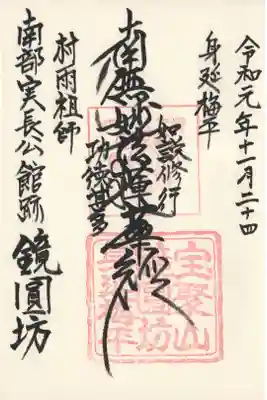 令和元年十一月二十四
身延梅平
如説修行
南無妙法蓮華経
功徳甚多
村雨祖師
南部実長公館跡 鏡圓坊